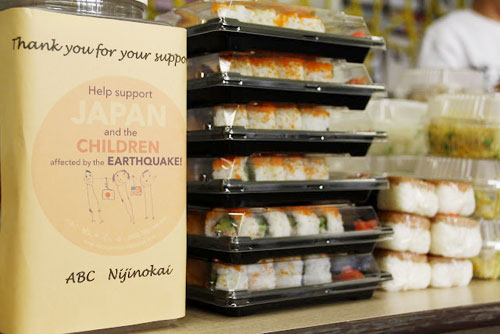 Thank you for your suppo
Help support
JAPAN
and the
CHILDREN
affected by the EARTHQUAKE!
ABC Nijinokai